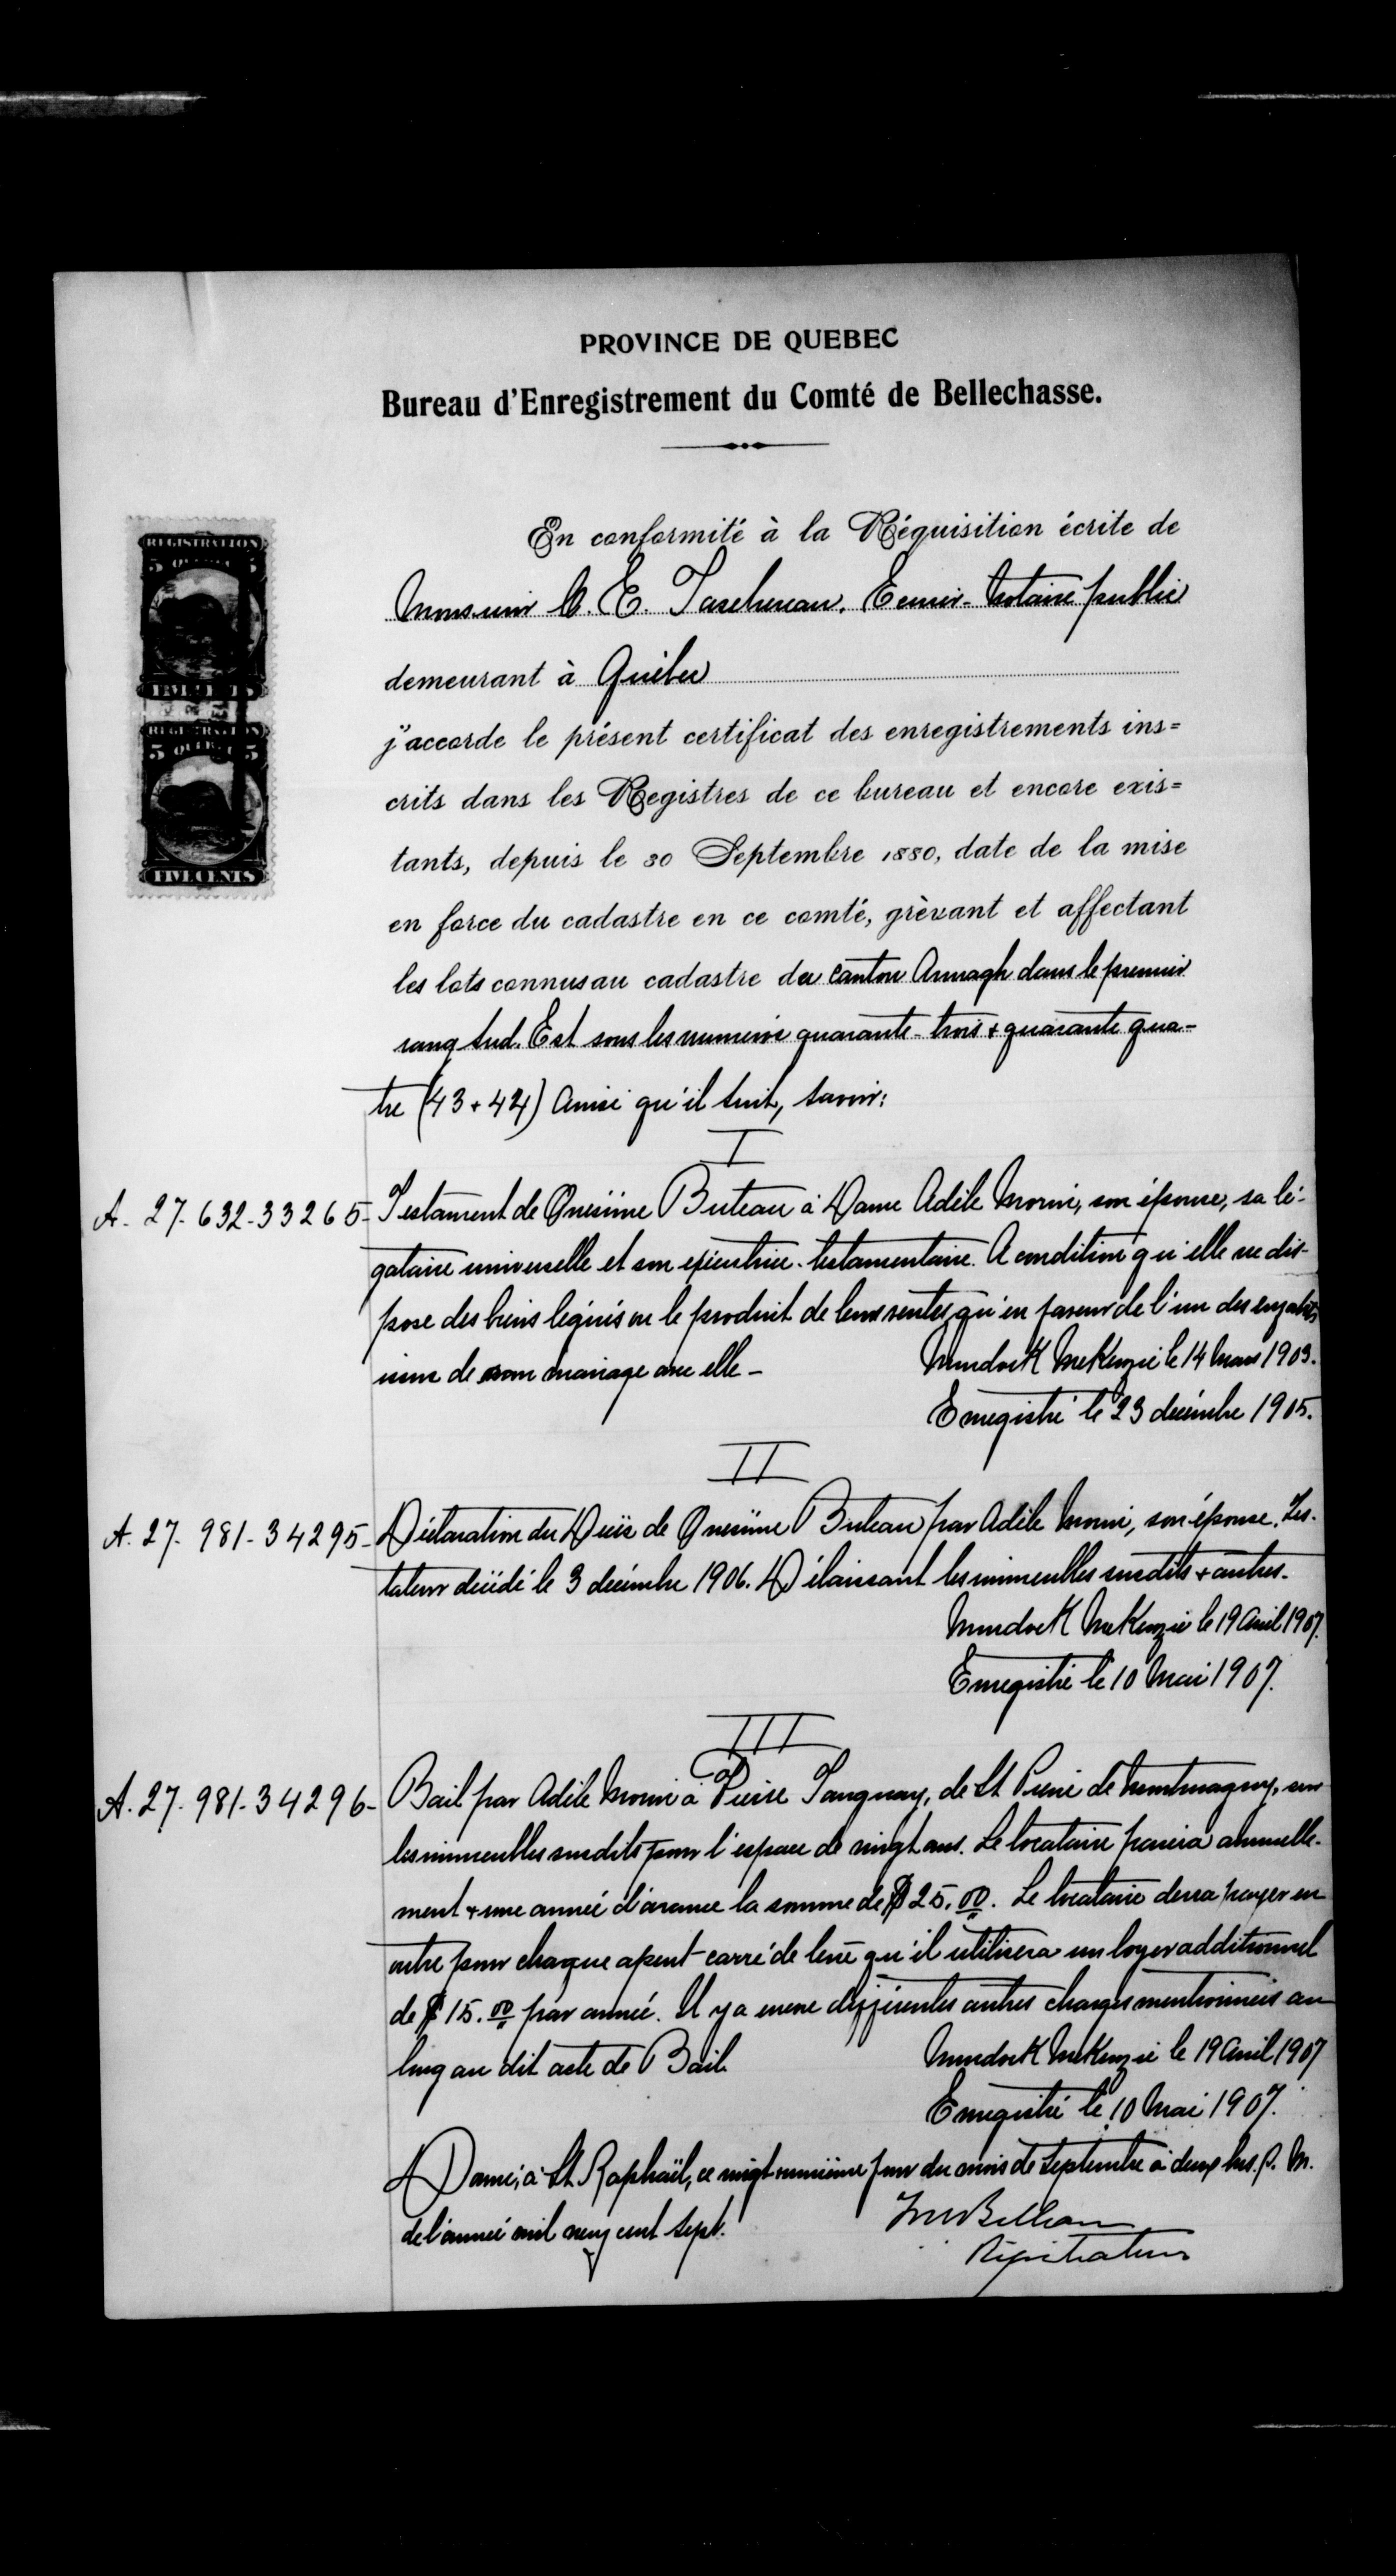 PROVINCE DE QUEBEC
Bureau d'Enregistrement du Comté de Bellechasse.
En conformité à la Réquisition écrite de
Monsieur C. E. Taschereau. Ecuier-Notaire public
demeurant à Québec
j'accorde le présent certificat des enregistrements ins=
crits dans les Registres de ce bureau et encore exis=
tants, depuis le 30 Septembre 1880, date de la mise
en force du cadastre en ce comté, grèvant et affectant
les lots connus au cadastre du canton Armagh dans le premier
rang Sud. Est sous les numéros quarante-trois + quarante qua-
tre (43 + 44) Ainsi qu'il suit, savoir:
I
A. 27. 632-33265- Testament de Onésime Buteau à Dame Adèle Morin, son épouse, sa lé-
gataire universelle et son exécutrice-testamentaire. A condition qu'elle ne dis-
pose des biens légués ou le produit de leurs ventes, qu'en faveur de l'un des enfants
issus de son mariage avec elle- Murdock McKenzie le 14 Mars 1903.
Enregistré le 23 décembre 1905.
II
A. 27. 981-34295- Déclaration du Décès de Onésime Buteau par Adèle Morin, son épouse. Tes-
tateur décédé le 3 décembre 1906. Délaissant les immeubles susdits + autres-
Murdock McKenzie le 19 Avril 1907.
Enregistré le 10 Mai 1907.
III
A. 27. 981-34296- Bail par Adèle Morin à Pierre Tanguay, de St Pierre de Montmagny, sur
les immeubles susdits pour l'espace de vingt ans. Le locataire paiera annuelle-
ment + une année d'avance la somme de $25.00. Le locataire devra payer en
outre pour chaque arpent carré de terre qu'il utilisera un loyer additionnel
de $15.00 par année. Il y a encore différentes autres charges mentionnées au
long au dit acte de Bail. Murdock McKenzie le 19 Avril 1907
Enregistré le 10 Mai 1907.
Donné, à St Raphaël, ce vingt neuvième jour du mois de Septembre à deux hrs. P. M.
de l'année mil neuf cent sept.
Régistrateur
REGISTRATION
5 QUEBEC 5
FIVE CENTS
REGISTRATION
5 QUEBEC 5
FIVE CENTS